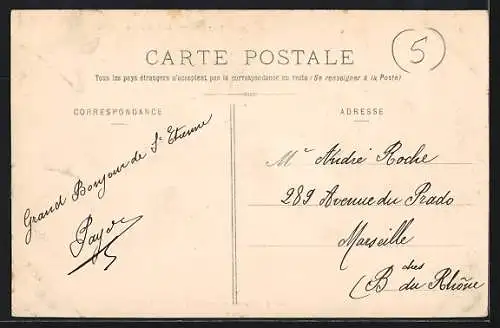 5
CARTE POSTALE
Tous les pays étrangers n'acceptent pas la correspondance au recto (Se renseigner à la Poste)
CORRESPONDANCE
Grand Bonjour de St Etienne
ADRESSE
Mr André Roche
289 Avenue du Prado
Marseille
(Bches du Rhône